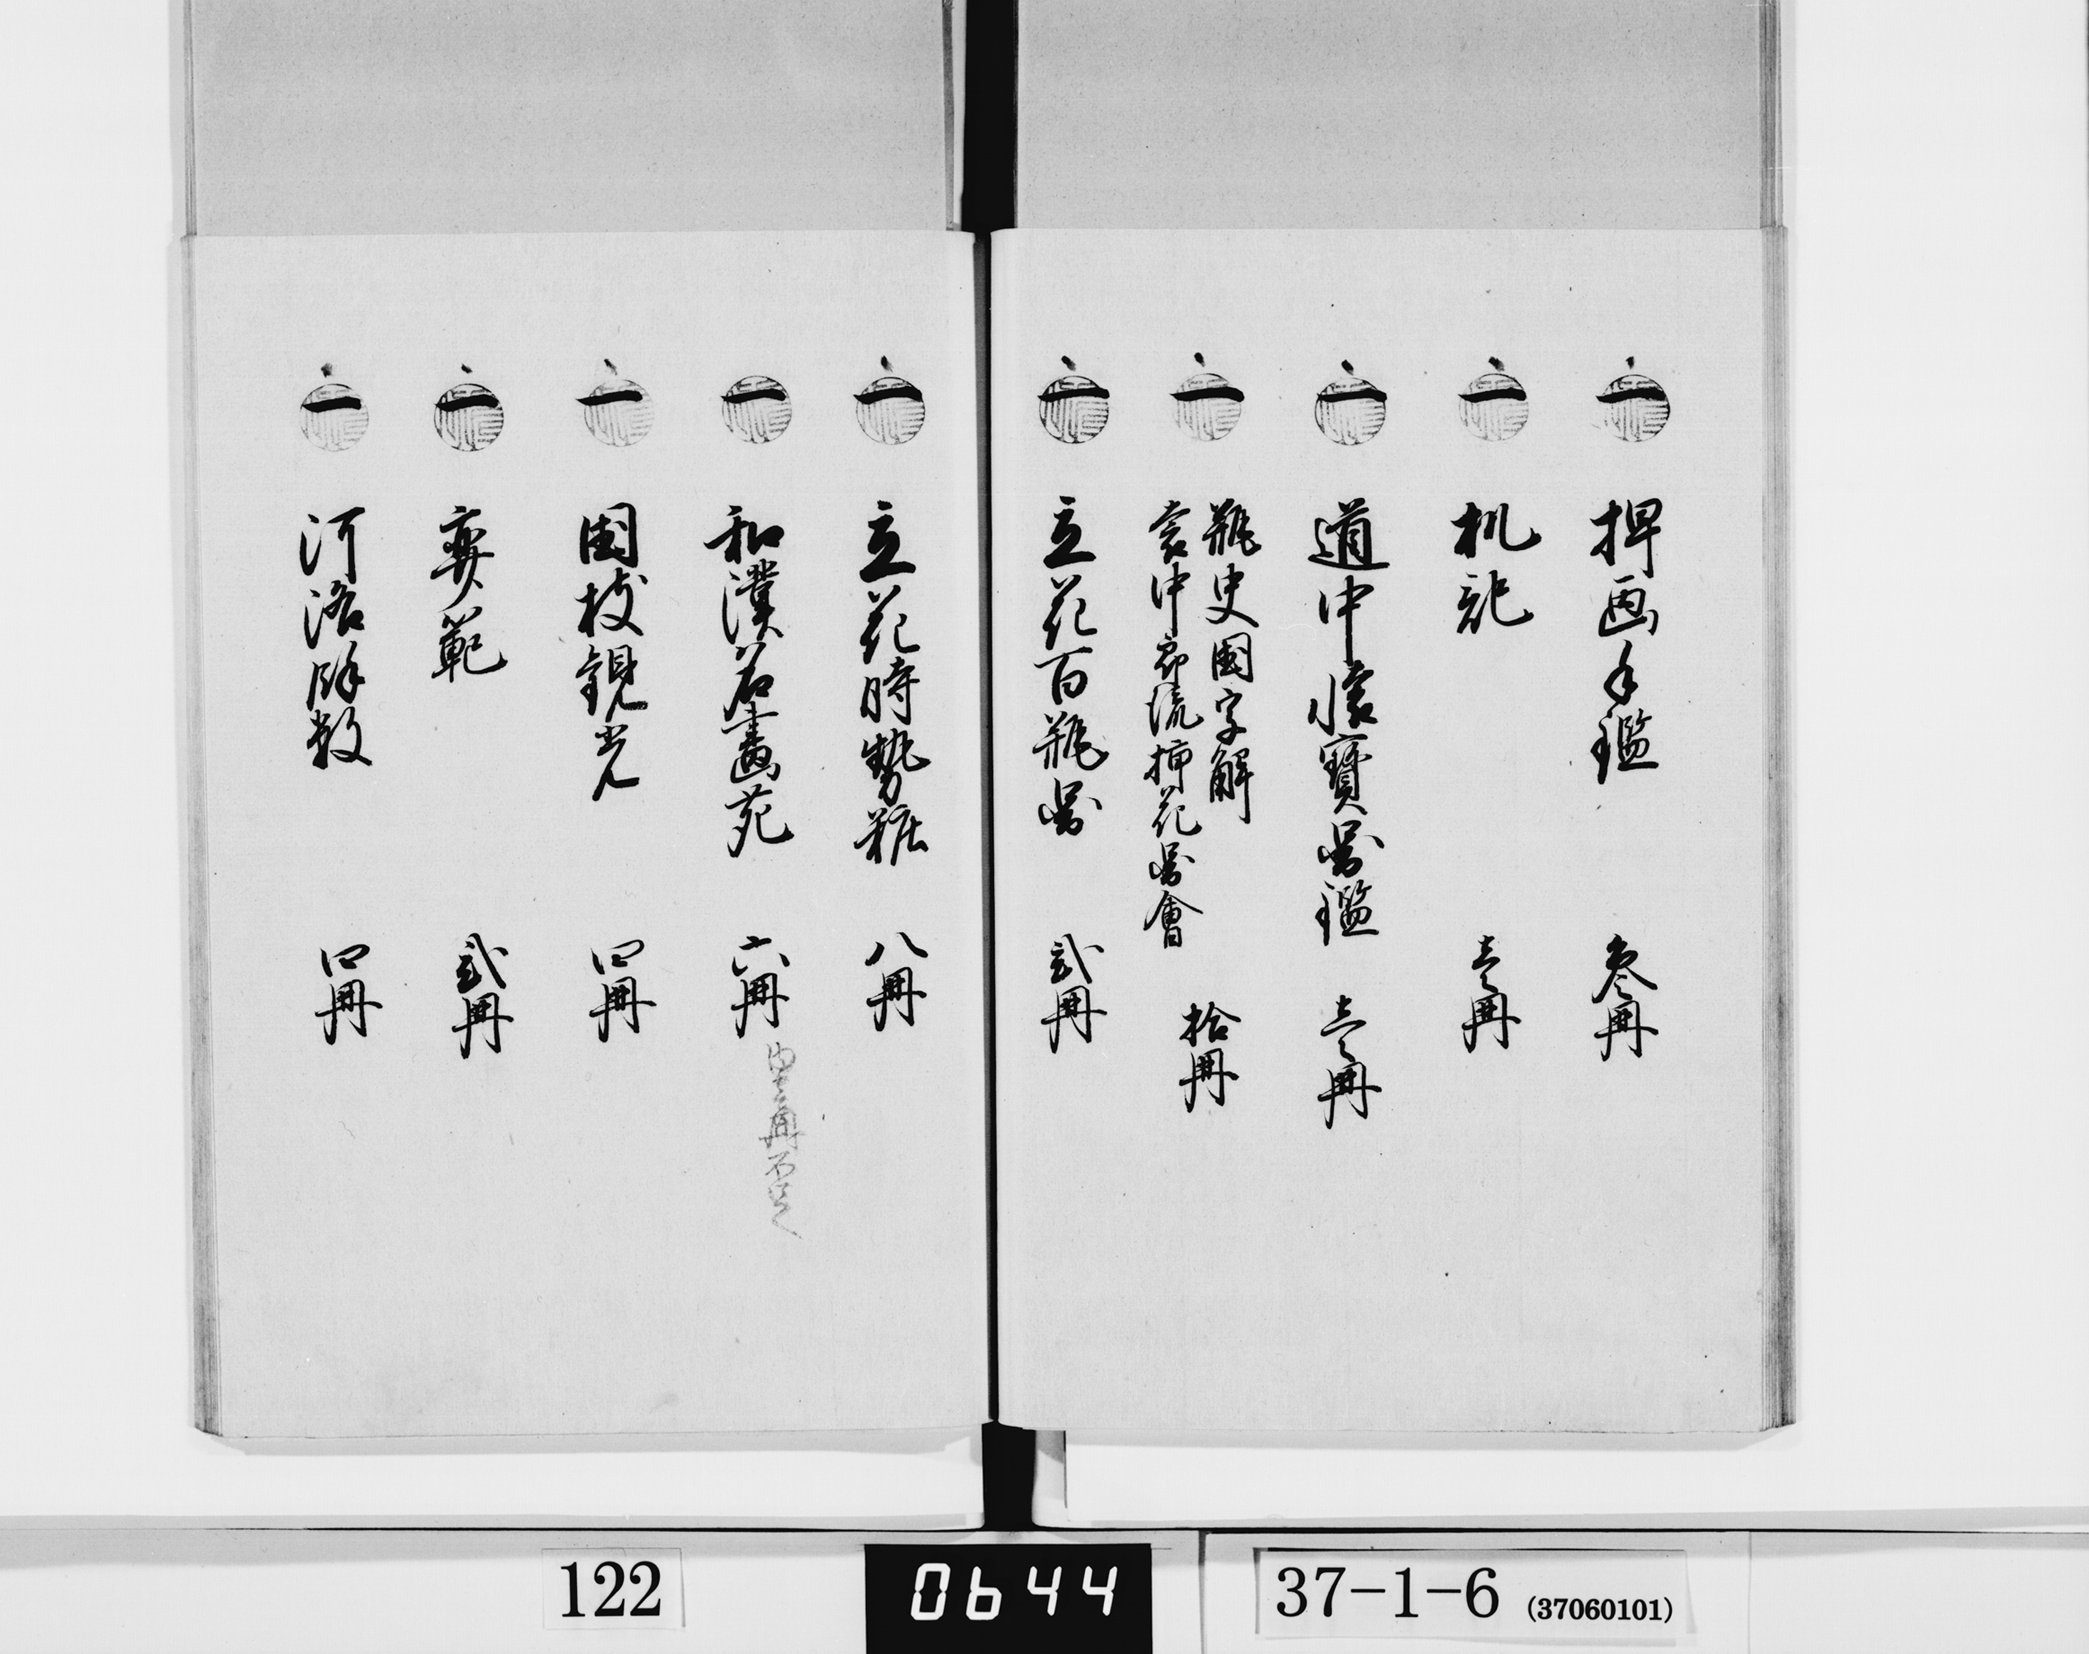 一 押画手鑑 叁冊
一 机記 壱冊
一 道中懐寶図鑑 壱冊
一 瓶史國字解
袁中郎流挿花図會 拾冊
一 立花百瓶図 弐冊
一 立花時勢粧 八冊
一 和漢名畫苑 六冊
一 国枝観光 四冊
一 奕範 弐冊
一 河洛餘数 四冊
122
0644
37-1-6 (37060101)